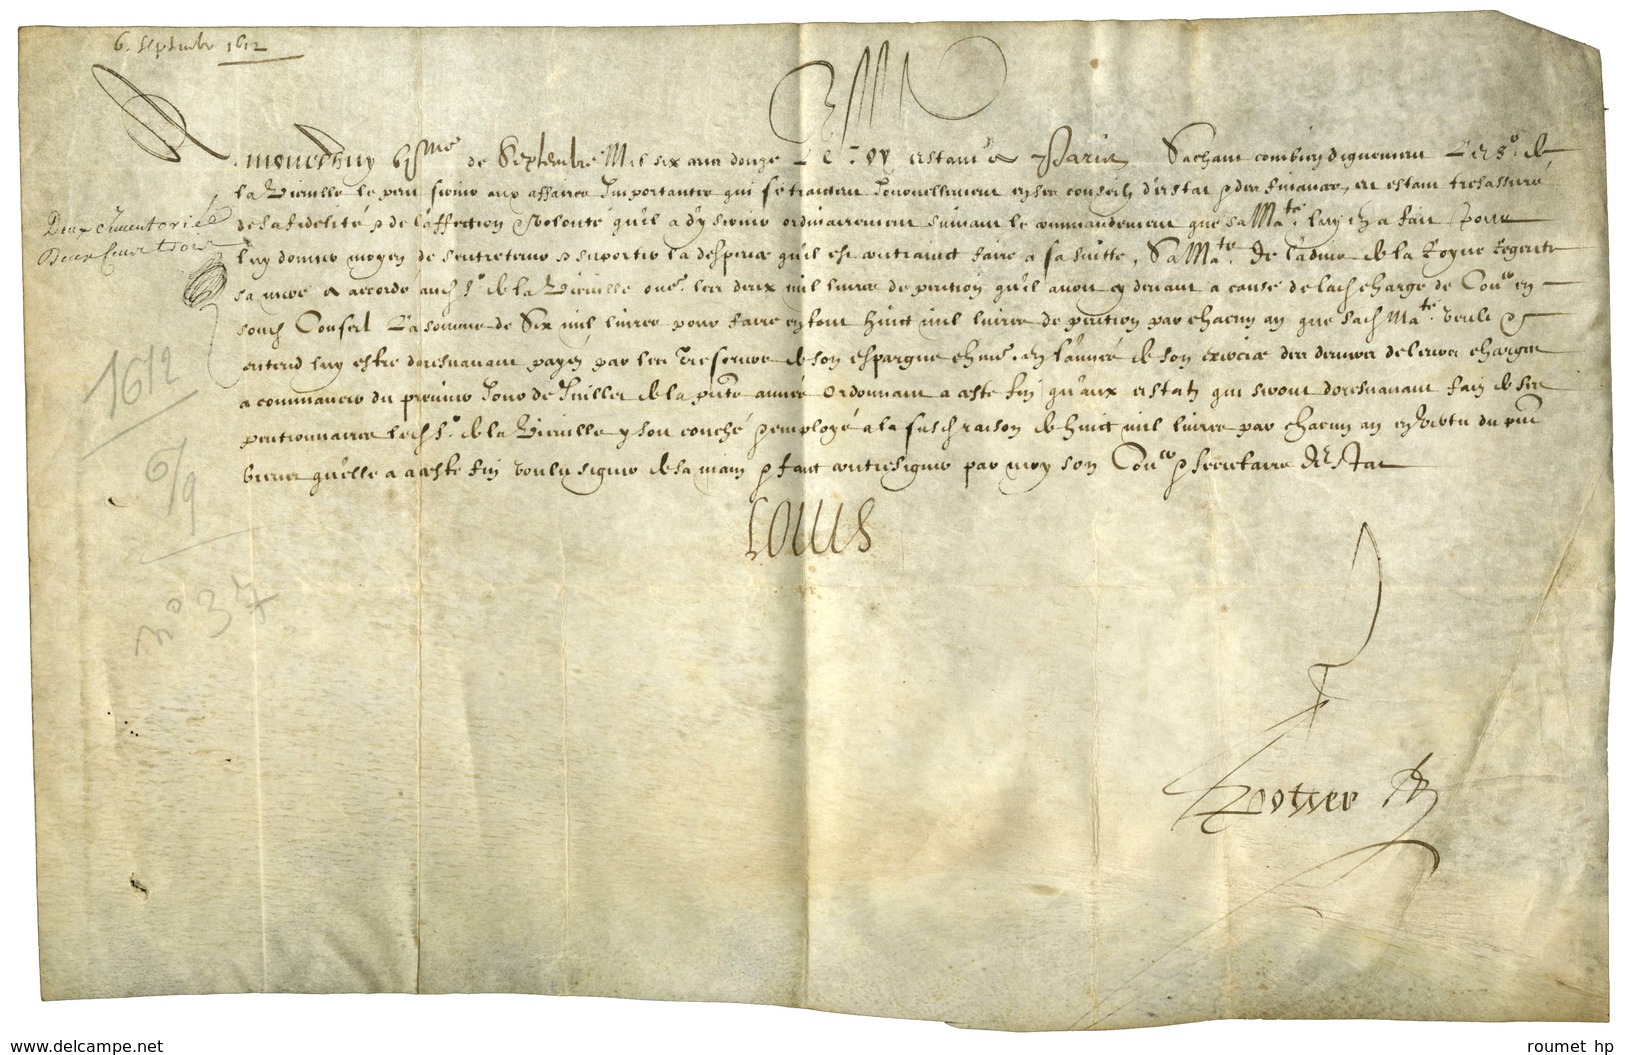 6. Septembre 1612
Aujourdhuy vjme de Septembre Mil six cens douze Le Roy estant a Paris Sachant combien dignement Le Sr. de
la Vieuville le peut servir aux affaires Importantes qui se traictent Journellement en ses conseilz d'estat & des finances, et estant tresasseuré
de sa fidelité & de l'affection & volonté qu'il a d'y servir ordinairement suivant le commandement que sa Mate. luy en a fait, pour
luy donner moyen de s'entretenir & suporter la despence qu'il est contrainct faire a sa suitte, Sa Mate. De l'advis de la Royne regente
sa mere a accordé aud Sr. de la Vieuville oue. les deux mil livres de pention qu'il avoit cy devant a cause de lad charge de Conser en
sond Conseil La somme de Six mil livres pour faire en tout huict mil livres de pention par chacun an que sad Mate. veult &
entend luy estre doresnavant payée par les Tresoriers de son espargne chune. en l'année de son exercice des deniers de leurs charges
a commancer du premier Jour de Juillet de la pnte année Ordonnant a ceste fin qu'aux estatz qui seront doresnavant faictz de ses
pentionnaires led Sr. de la Vieuville y soit couché & employé a la susd raison de huict mil livres par chacun an en vertu du pnt
brevet qu'elle a a ceste fin voulu signer de sa main & faict contresigner par moy son Conser & secretaire d'Estat
Louis
Potier
1612
6/9
n° 37
www.delcampe.net
roumet hp